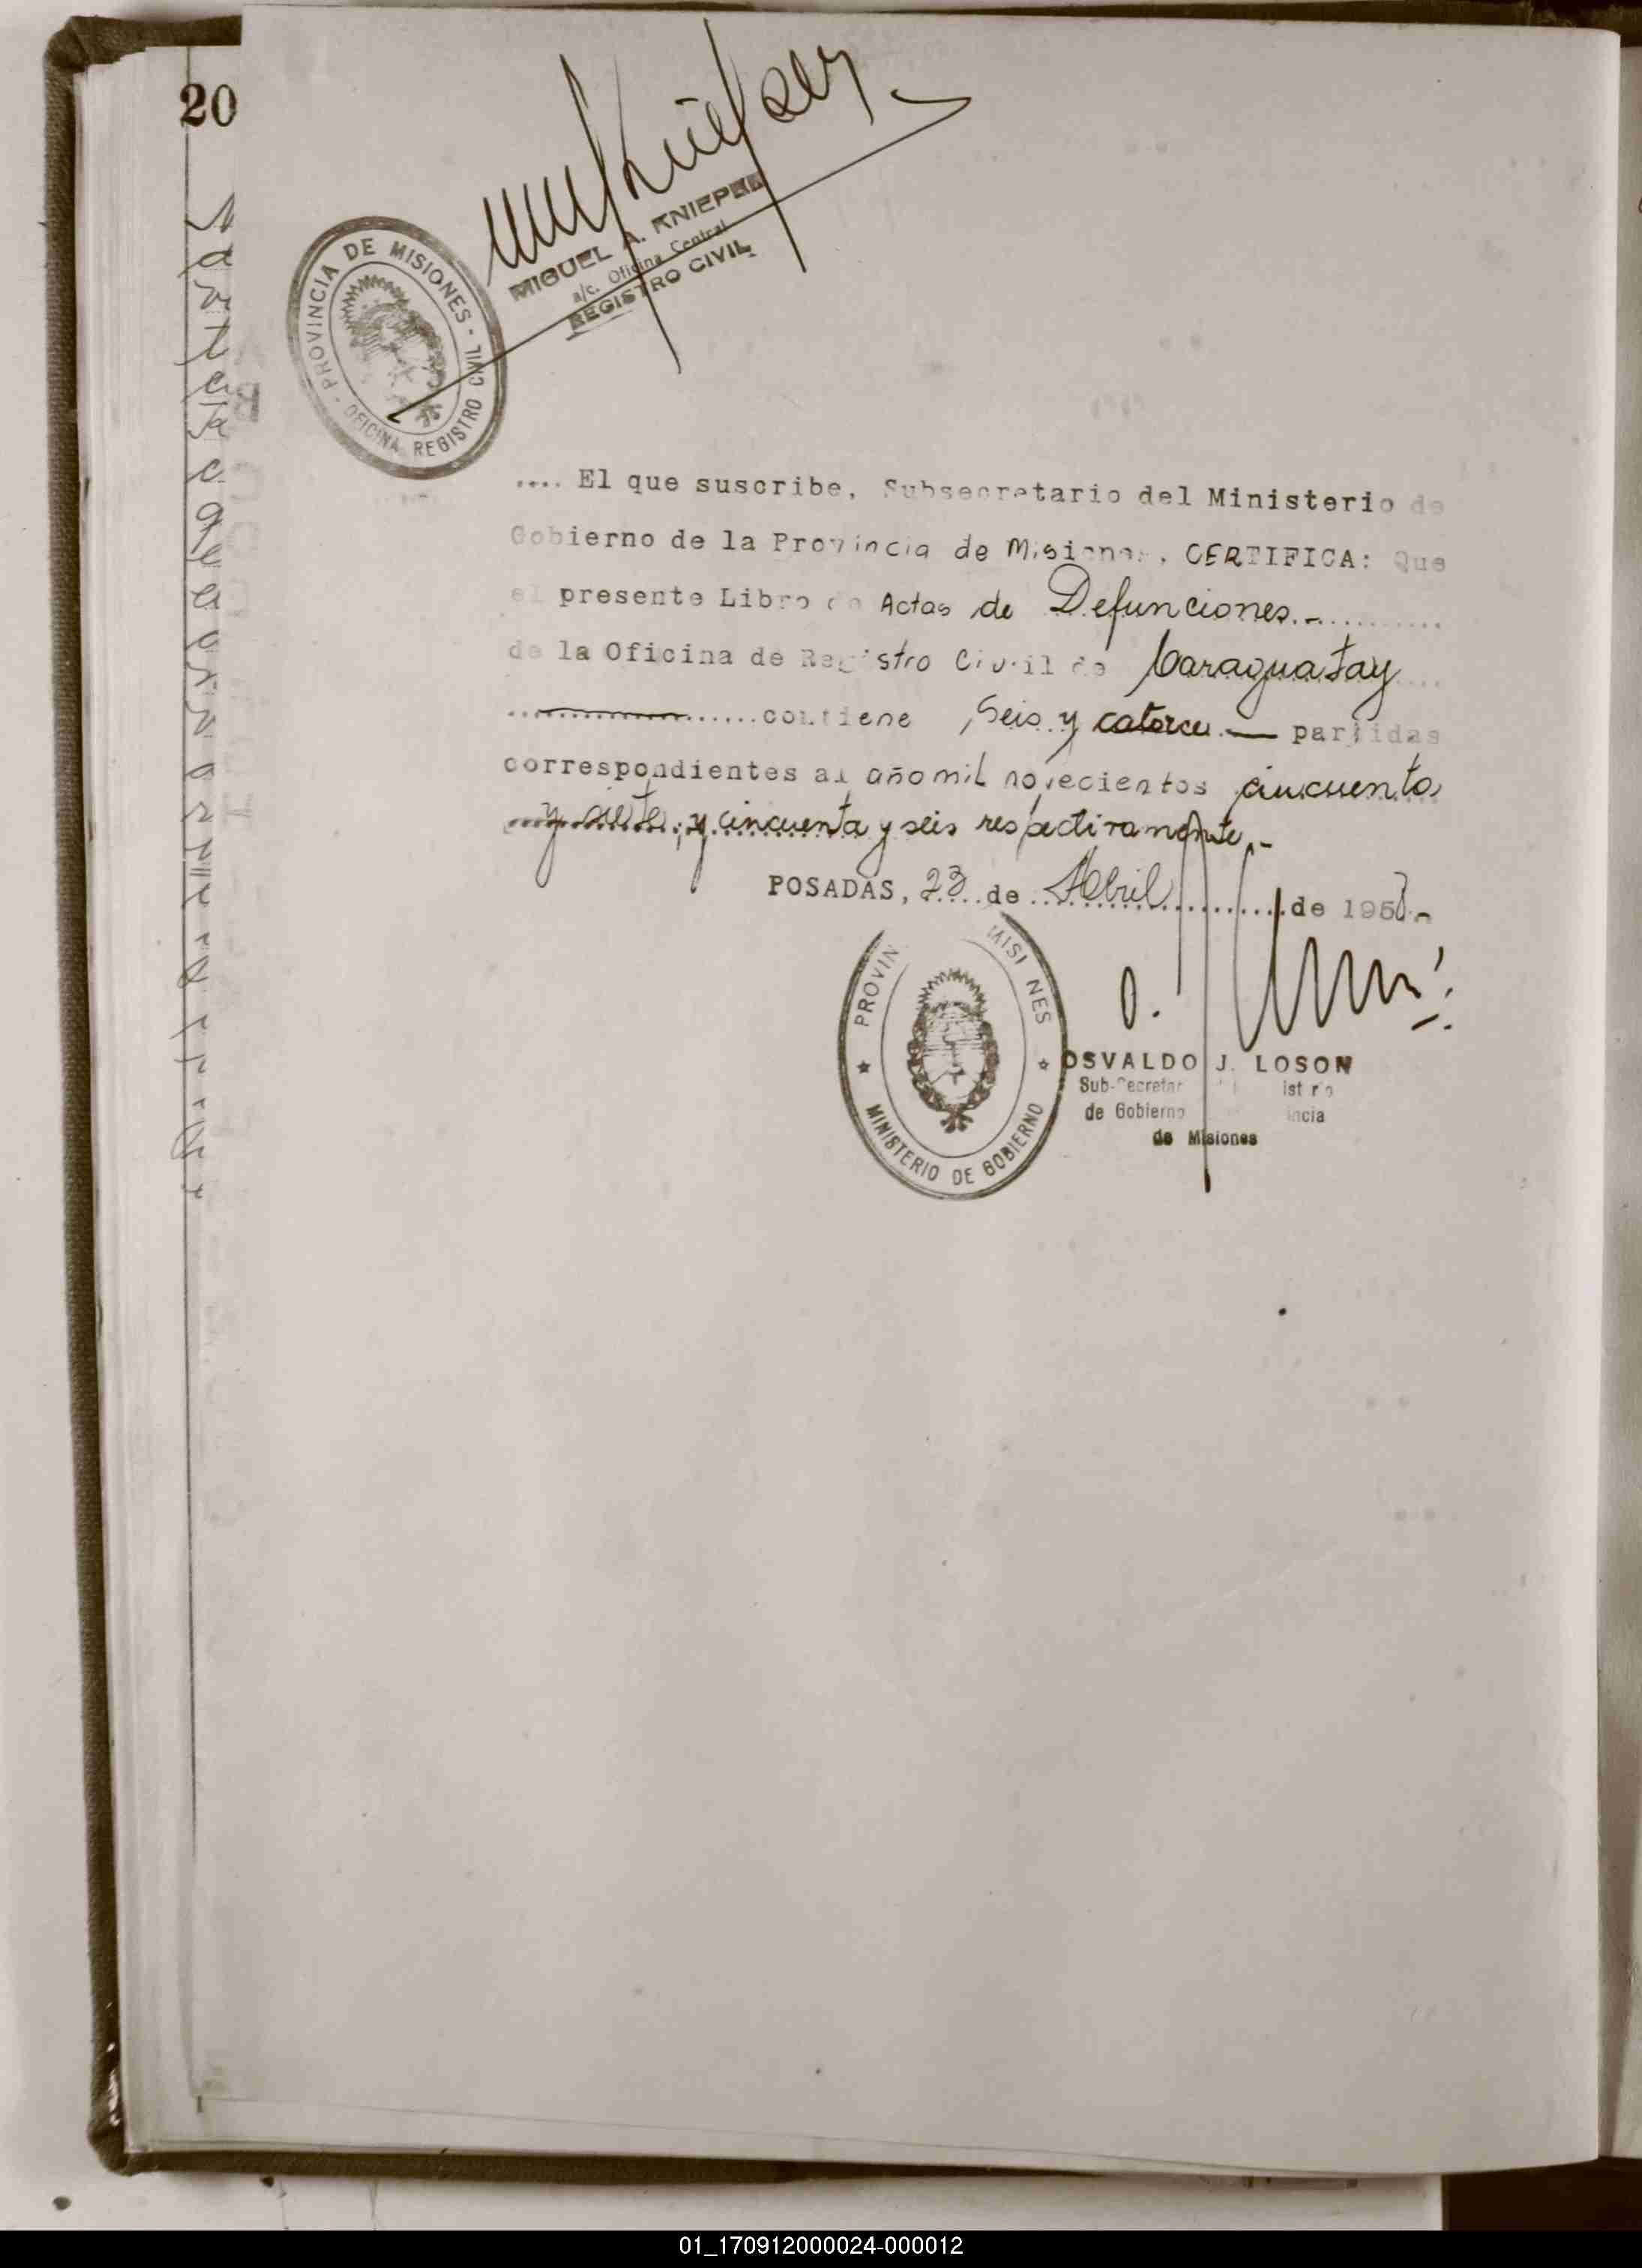 20
PROVINCIA DE MISIONES - OFICINA REGISTRO CIVIL -
MIGUEL A. KNIEPER
a/c. Oficina Central
REGISTRO CIVIL
.... El que suscribe, Subsecretario del Ministerio de
Gobierno de la Provincia de Misiones, CERTIFICA: Que
el presente Libro de Actas de Defunciones.-..........
de la Oficina de Registro Civil de Caraguatay....
contiene Seis y catorce.— partidas
correspondientes al año mil novecientos cincuenta
y siete, y cincuenta y seis respectivamente.-
POSADAS, 23 de Abril de 1958.-
PROVIN MISI NES
★ MINISTERIO DE GOBIERNO ★
OSVALDO J. LOSON
Sub-Secretar ist rio
de Gobierno incia
de Misiones
01_170912000024-000012